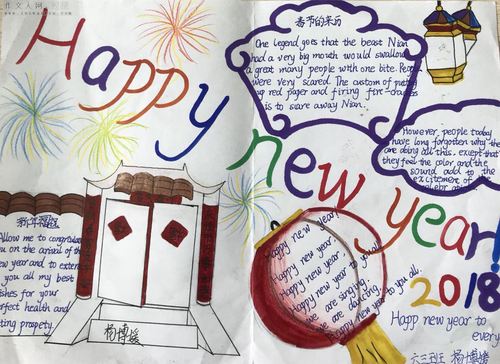 作文人网
Happy
new year!
2018
春节的来历
One legend goes that the beast Nian
had a very big mouth would swallow
a great many people with one bite. Peop
were very scared. The custom of putting
up red paper and firing fire-crackers
is to scare away Nian.
However people today
have long forgotten why the
are doing all this, except that
they feel the color and the
sound add to the
excitement of the
新年祝福
Allow me to congratulate
you on the arrival of the
new year and to extend
you all my best
shes for your
erfect health and
ting prospety.
Happy new year!
Happy new year,
Happy new year,
Happy new year to you all!
We are singing,
We are dancing,
Happy new year to you all.
Happ new year to
every
杨博媛
六三班 杨博媛